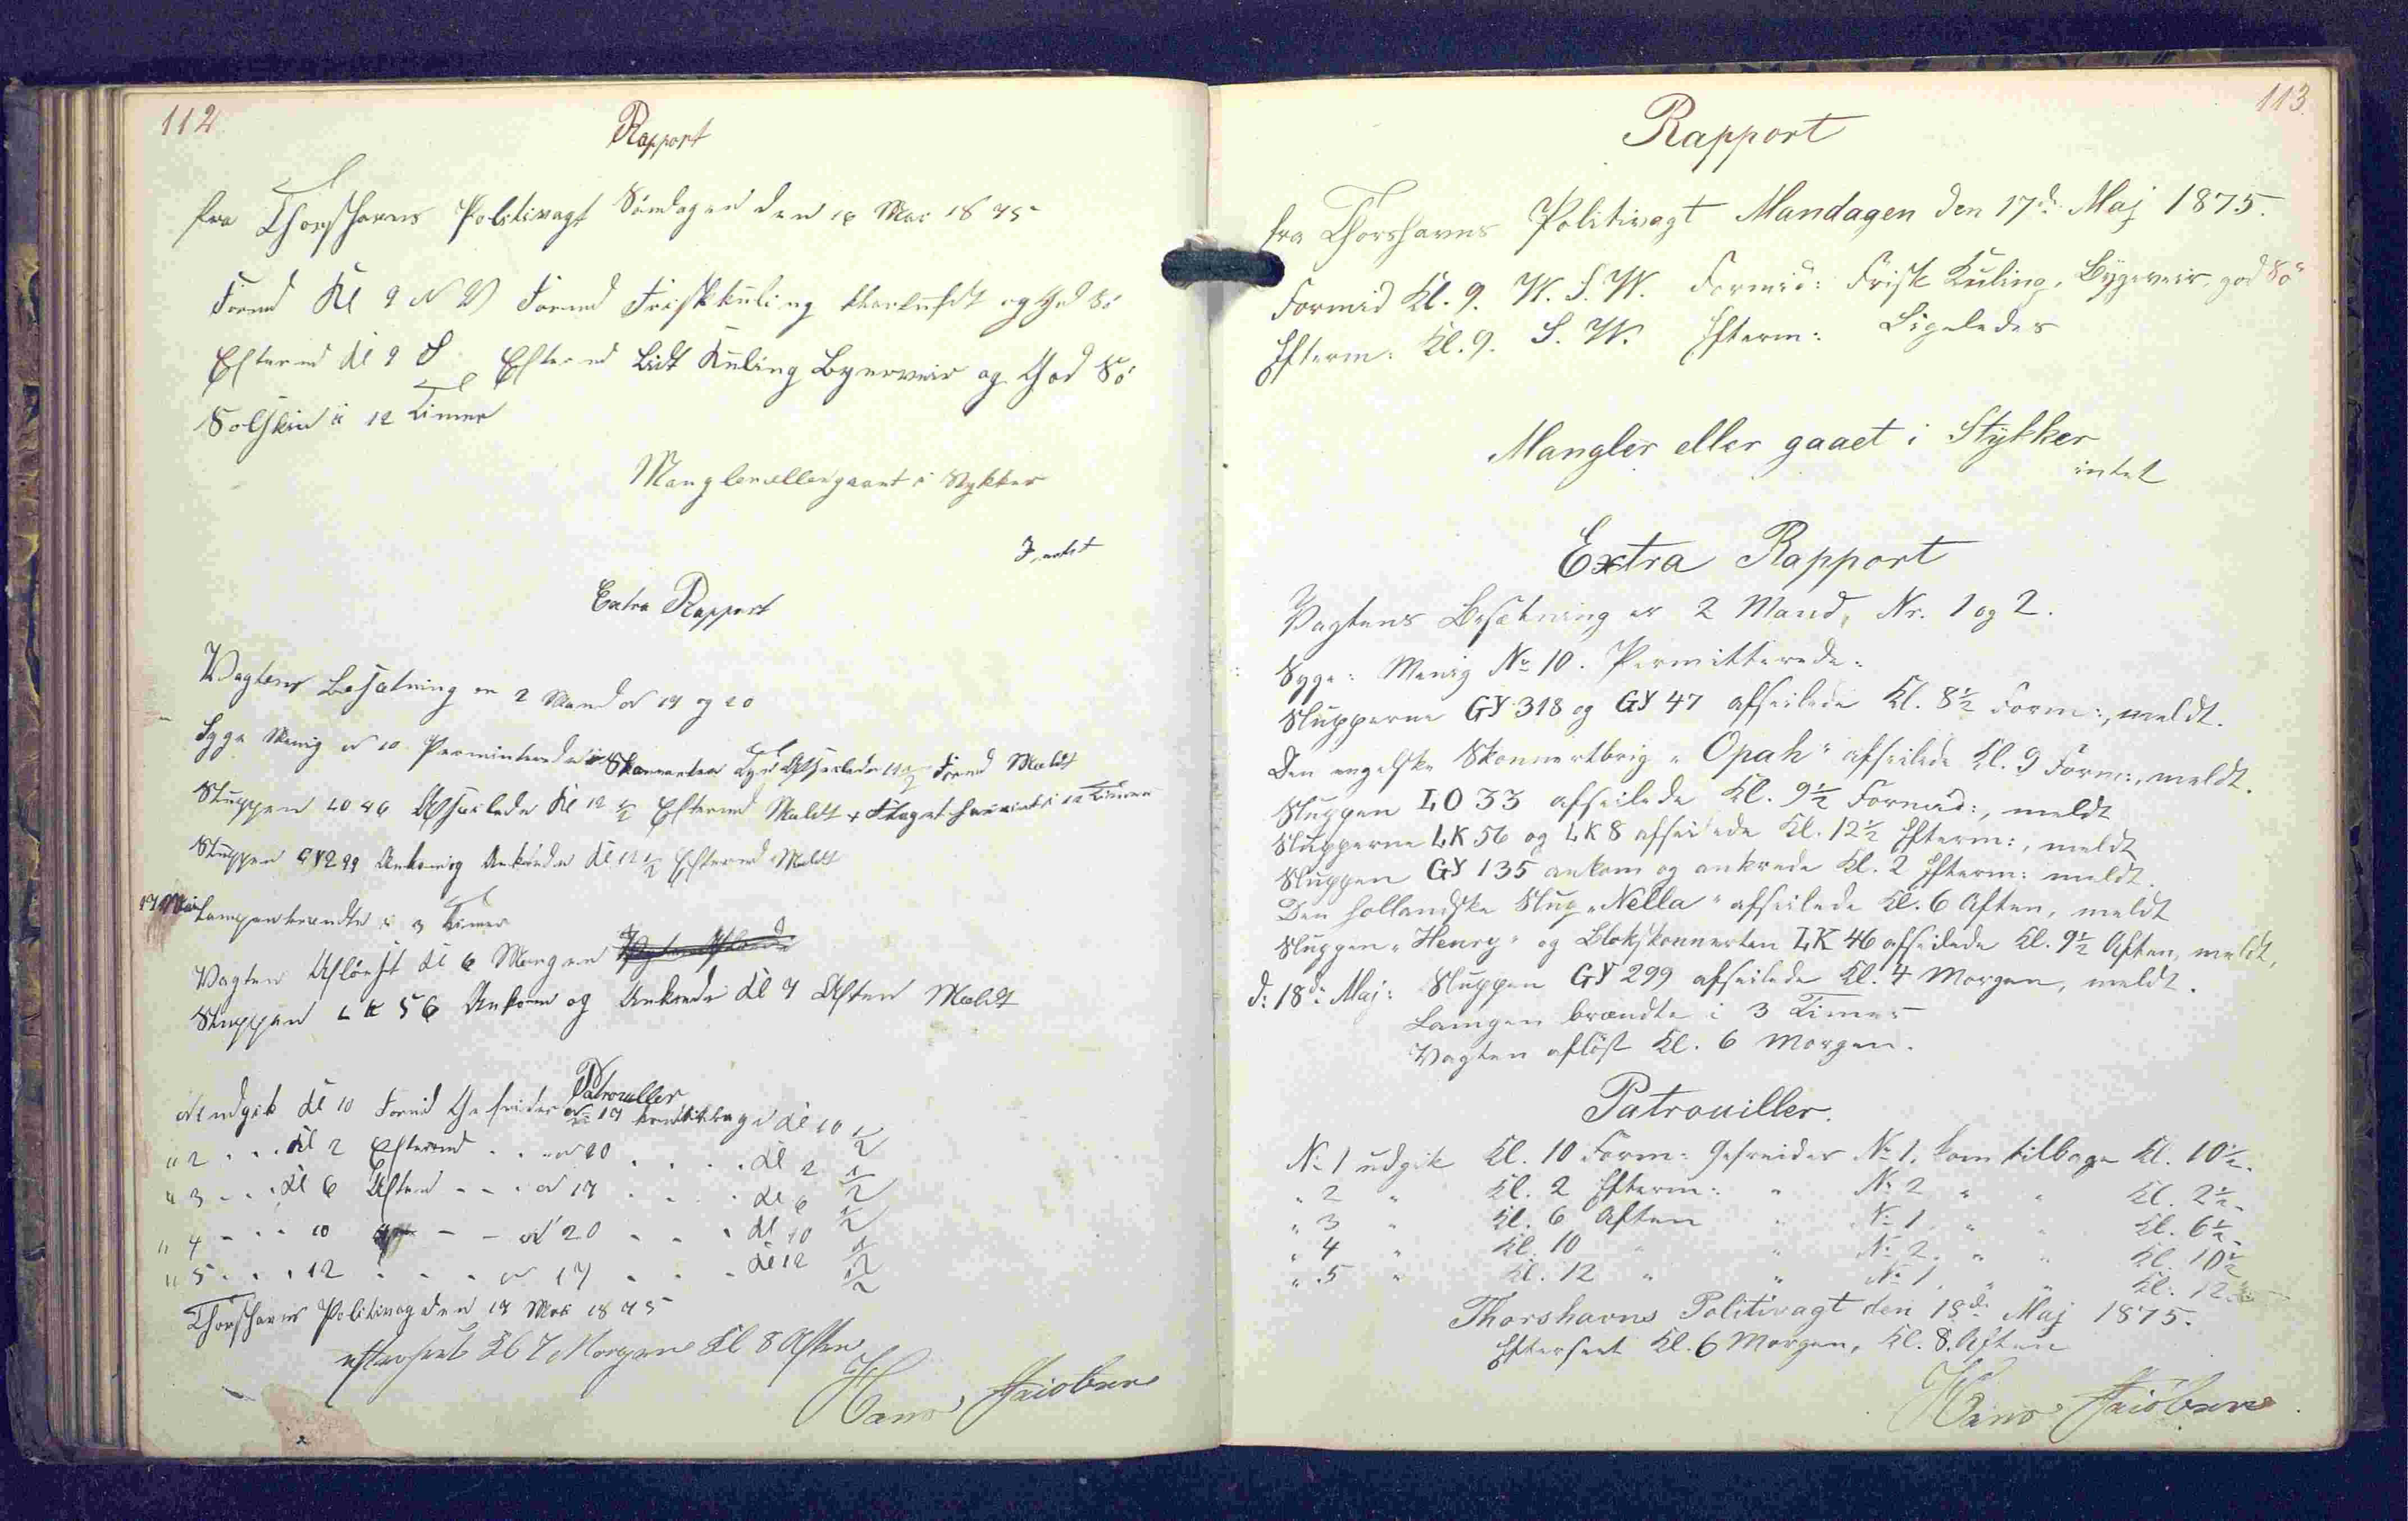 112
Rapport
fra Thorshavns Politivagt Søndagen den 16 Mai 1875
Formd Kl 9 N V Formd Frisk kuling klarluft og God Sö
Eftermd Kl 9 S Eftermd Lidt Kuling Byerveir og God Sö
Solskin i 12 Timer
Mangler eller gaaet i Stykker
Intet
Extra Rapport
Vagtens Besætning er 2 Mand № 19 og 20
Syge Menig № 10 Permiterede Skonnerten Afseilede 11½ Formd Meldt
Sluppen LO 46 Afseilede Kl 12½ Eftermd Meldt Flaget i 12 Timer
Sluppen GY 299 Ankom og Ankrede Kl 12½ Eftermd Meldt
17 Mai Lampen brændte i 3 Timer
Vagten Aflöst Kl 6 Morgen
Sluppen LK 56 Ankom og Ankrede Kl 7 Aften Meldt
Patrouller
№ 1 udgik Kl 10 Formd Gefreider № 19 kom tilbage Kl 10½
" 2 . . . Kl 2 Eftermd . . . № 20 . . . . Kl 2½
" 3 . . . Kl 6 Aften . . . № 19 . . . . Kl 6½
" 4 . . . 10 . . № 20 . . . Kl 10½
" 5 . . . 12 . . . . № 19 . . . . Kl 12½
Thorshavns Politivagt den 17 Mai 1875
efterseet Kl 7 Morgen Kl 8 Aften
Hans Jacobsen
113
Rapport
fra Thorshavns Politivagt Mandagen den 17d. Maj 1875.
Formid Kl. 9. W. S. W. Formid: Frisk Kuling, Bygeveir, god Sö
Efterm: Kl. 9. S. W. Efterm: Ligeledes
Mangler eller gaaet i Stykker
intet
Extra Rapport
Vagtens Besætning er 2 Mand, Nr. 1 og 2.
Syge: Menig № 10. Permitterede:
Slupperne GY 318 og GY 47 afseilede Kl. 8½ Form:, meldt.
Den engelske Skonnertbrig "Opah" afseilede Kl. 9 Form:, meldt.
Sluppen LO 33 afseilede Kl. 9½ Formid:, meldt
Slupperne LK 56 og LK 8 afseilede Kl. 12½ Efterm:, meldt
Sluppen GY 135 ankom og ankrede Kl. 2 Efterm: meldt.
Den hollandske Slup "Nella" afseilede Kl. 6 Aften, meldt
Sluppen "Henry" og Blokskonnerten LK 46 afseilede Kl. 9½ Aften, meldt,
d: 18d. Maj: Sluppen GY 299 afseilede Kl. 4 Morgen, meldt.
Lampen brændte i 3 Timer
Vagten aflöst Kl. 6 Morgen.
Patrouiller.
№ 1 udgik Kl. 10 Form: Gefreider № 1. kom tilbage Kl. 10½.
" 2 " Kl. 2 Efterm: " № 2 " " Kl. 2½.
" 3 " Kl. 6 Aften " № 1 " " Kl. 6½.
" 4 " Kl. 10 " " № 2. " " Kl. 10½
" 5 " Kl. 12 " " № 1. " " Kl. 12½
Thorshavns Politivagt den 18d. Maj 1875.
Efterseet Kl. 6 Morgen, Kl. 8. Aften
Hans Jacobsen